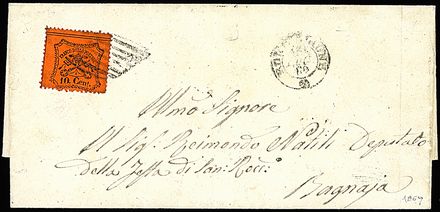 10 Cent.
Illmo Signore
Il Sig. Reimondo Natili Deputato
della Festa di San: Rocc:
Bagnaja
1869